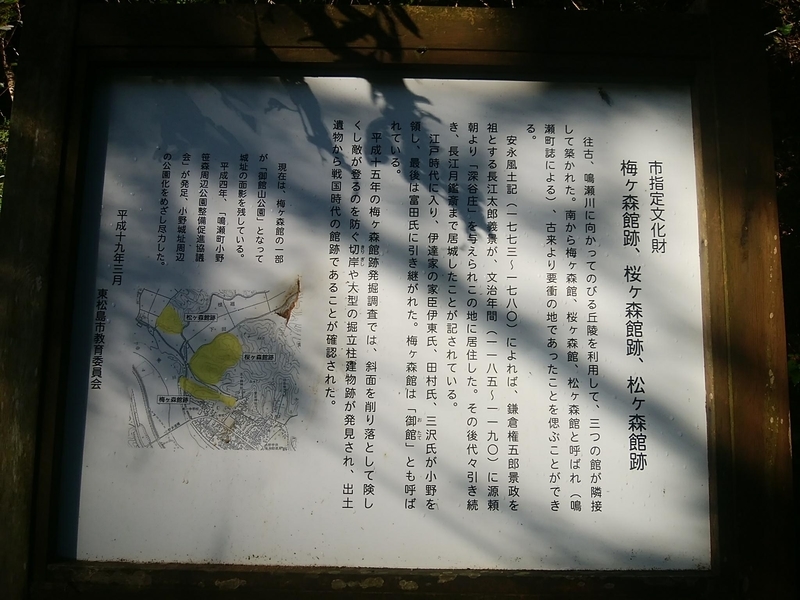 市指定文化財
梅ヶ森館跡、桜ヶ森館跡、松ヶ森館跡
往古、鳴瀬川に向かってのびる丘陵を利用して、三つの館が隣接
して築かれた。南から梅ヶ森館、桜ヶ森館、松ヶ森館と呼ばれ（鳴
瀬町誌による）、古来より要衝の地であったことを偲ぶことができ
る。
安永風土記（一七七三～一七八〇）によれば、鎌倉権五郎景政を
祖とする長江太郎義景が、文治年間（一一八五～一一九〇）に源頼
朝より「深谷庄」を与えられこの地に居住した。その後代々引き続
き、長江月鑑斎まで居城したことが記されている。
江戸時代に入り、伊達家の家臣伊東氏、田村氏、三沢氏が小野を
領し、最後は富田氏に引き継がれた。梅ヶ森館は「御館」とも呼ば
れている。
平成十五年の梅ヶ森館跡発掘調査では、斜面を削り落として険し
くし敵が登るのを防ぐ切岸や大型の掘立柱建物跡が発見され、出土
遺物から戦国時代の館跡であることが確認された。
現在は、梅ヶ森館の一部
が「御館山公園」となって
城址の面影を残している。
平成四年、「鳴瀬町小野
笹森周辺公園整備促進協議
会」が発足、小野城址周辺
の公園化をめざし尽力した。
平成十九年三月
東松島市教育委員会
松ヶ森館跡
桜ヶ森館跡
梅ヶ森館跡